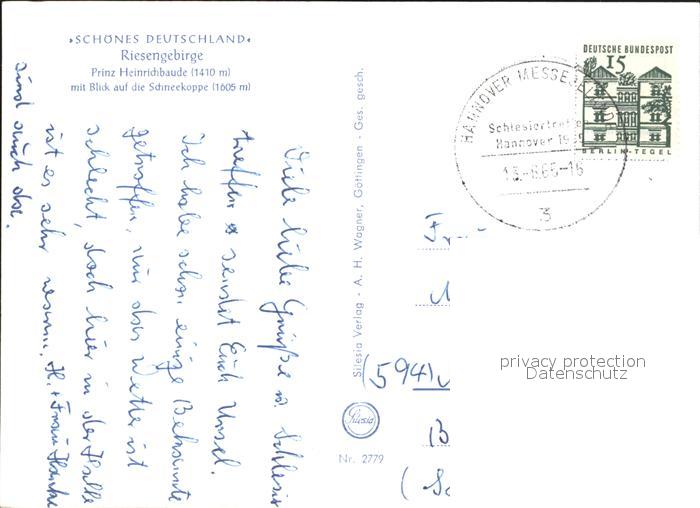 »SCHÖNES DEUTSCHLAND«
Riesengebirge
Prinz Heinrichbaude (1410 m)
mit Blick auf die Schneekoppe (1605 m)
Viele liebe Grüße v. Schlesier
treffen sendet Euch Ursel.
Ich habe schon einige Bekannte
getroffen, nur das Wetter ist
schlecht, doch hier in der Halle
ist es sehr warm. H. + Frau Hanke
sind auch da.
Silesia Verlag - A. H. Wagner, Göttingen - Ges. gesch.
Silesia
Nr. 2779
DEUTSCHE BUNDESPOST
15
BERLIN-TEGEL
HANNOVER MESSEGE
Schlesiertreffe
Hannover 19
-16
3
(594)
B
privacy protection
Datenschutz